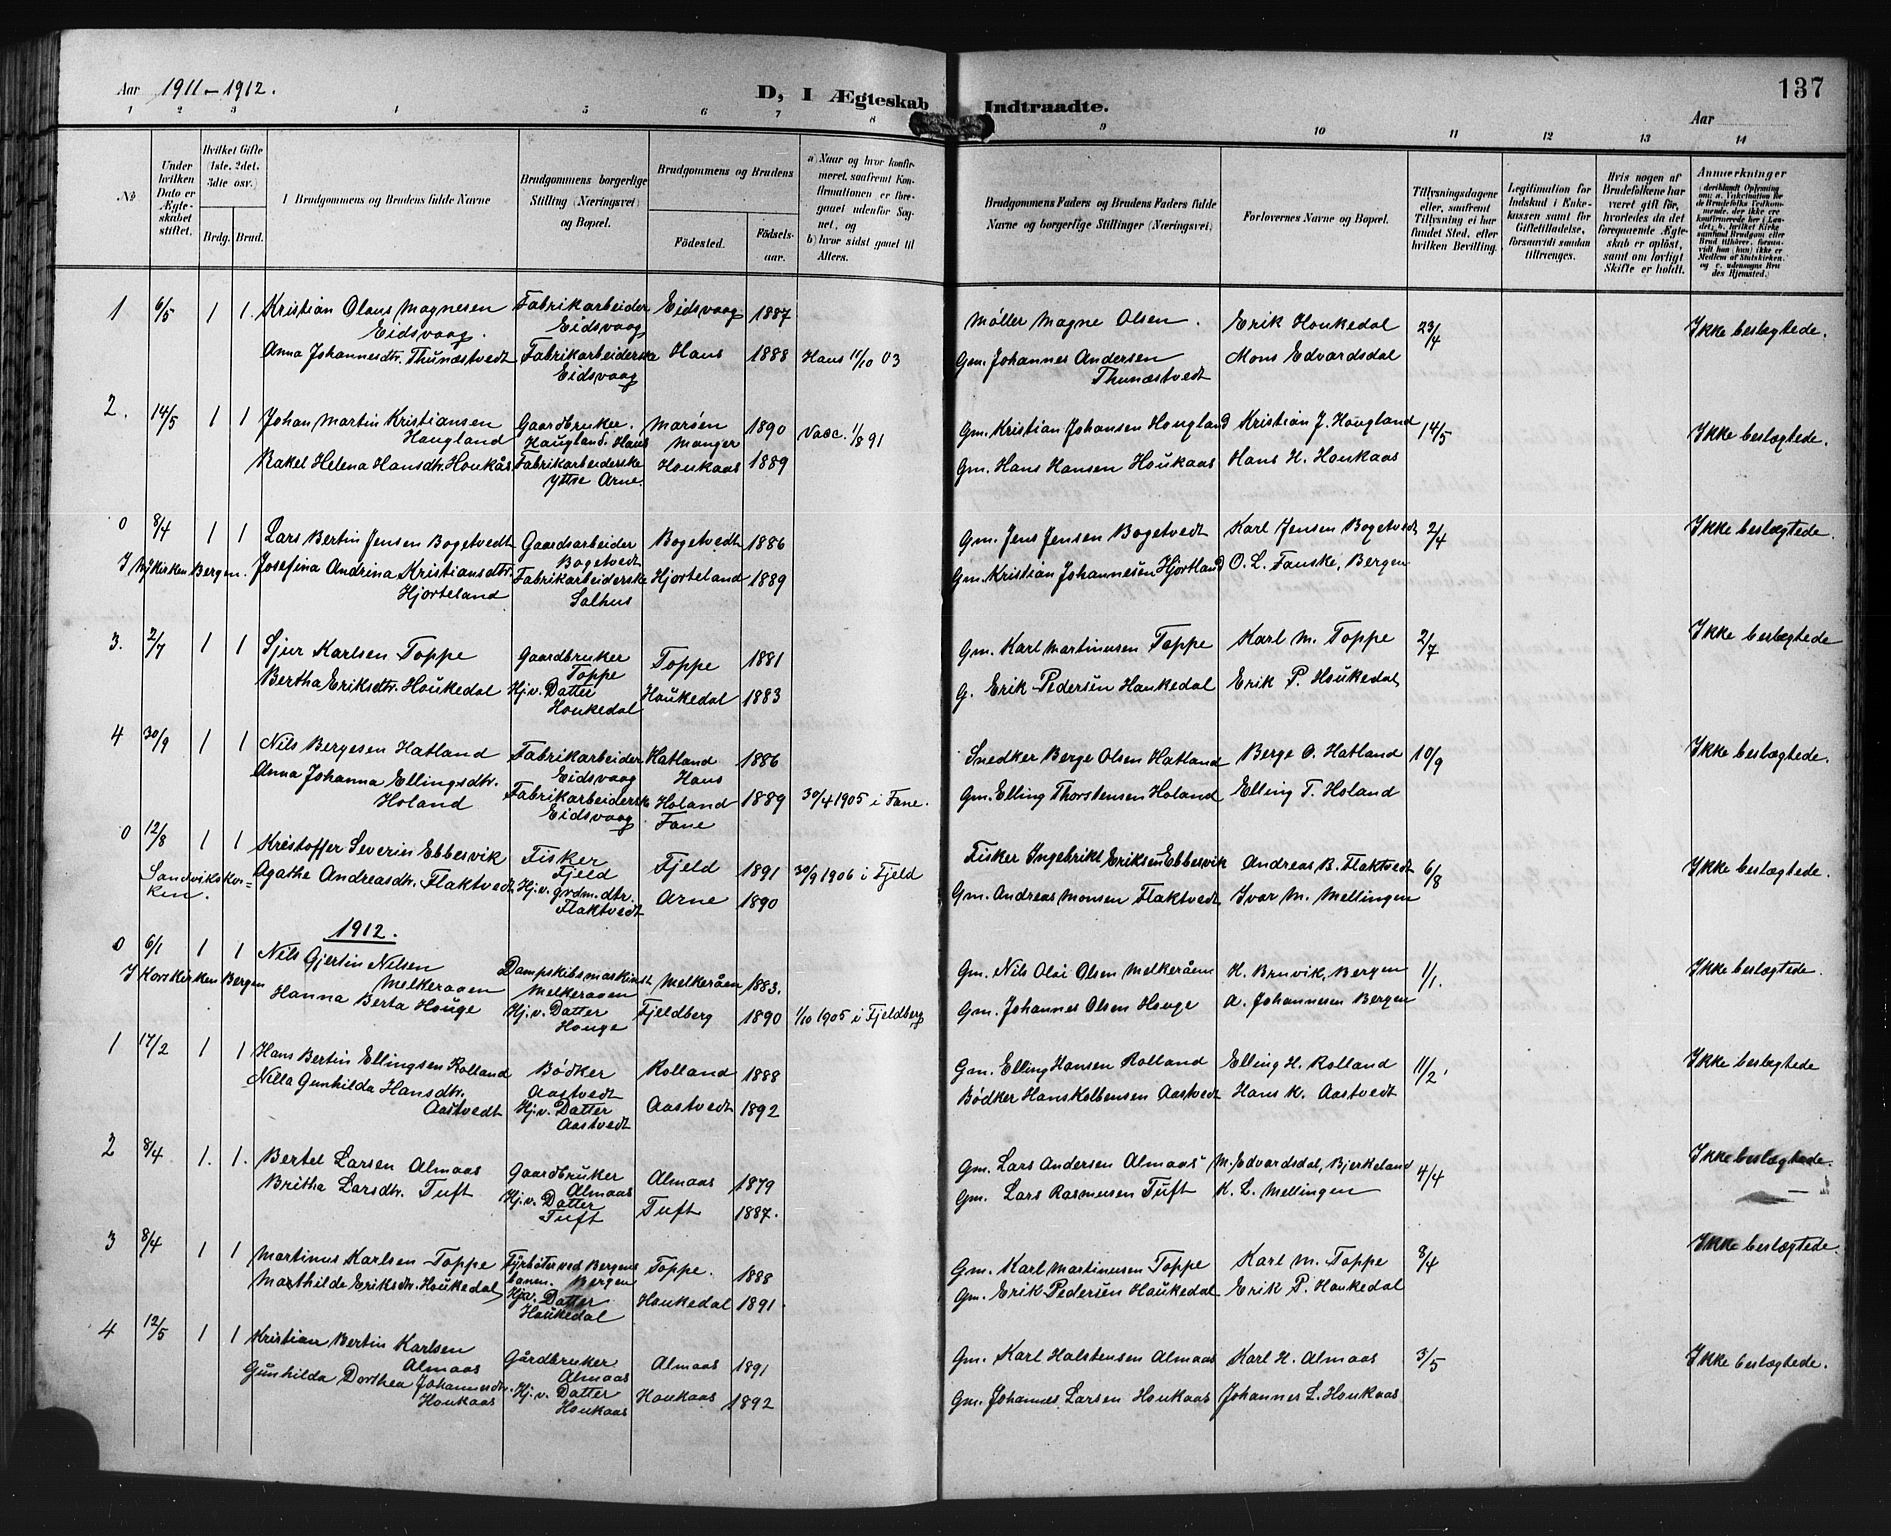 Aar 1911 – 1912.
D, I Ægteskab Indtraadte.
137
Aar
1 2 3 4 5 6 7 8 9 10 11 12 13 14
No
Under hvilken Dato er Ægteskabet stiftet.
Hvilket Gifte (1ste, 2det, 3die osv.)
Brdg. Brud.
Brudgommens og Brudens fulde Navne
Brudgommens borgerlige Stilling (Næringsvei) og Bopæl.
Brudgommens og Brudens
Födested. Födselsaar.
a) Naar og hvor konfirmeret, saafremt Konfirmationen er foregaaet udenfor Sognet, og
b) hvor sidst gaaet til Alters.
Brudgommens Faders og Brudens Faders fulde Navne og borgerlige Stillinger (Næringsvei)
Forlovernes Navne og Bopæl.
Tillysningsdagene eller, saafremt Tillysning ei har fundet Sted, efter hvilken Bevilling.
Legitimation for Indskud i Enkekassen samt for Giftetilladelse, forsaavidt saadan tiltrænges.
Hvis nogen af Brudefolkene har været gift för, hvorledes da det foregaaende Ægteskab er oplöst, samt om lovligt Skifte er holdt.
Anmærkninger
1 6/5 1 1. Kristian Olaus Magnesen Fabrikarbeider Eidsvaag 1887 Møller Magne Olsen. Erik Houkedal 23/4 Ikke beslægtede.
Eidsvaag. Eidsvaag
Anna Johannesdtr. Thunæstvedt Fabrikarbeiderske Haus 1888 Haus 11/10 03 Gm. Johannes Andersen Mons Edvardsdal
Eidsvaag Thunæstvedt
2. 14/5 1 1 Johan Martin Kristiansen Gaardbruker. Marøen 1890 Vacc. 1/8 91 Gm. Kristian Johansen Hougland Kristian J. Hougland 14/5 Ikke beslægtede.
Haugland Haugland. Haus Manger
Rakel Helena Hansdtr. Houkås Fabrikarbeiderske Houkaas 1889 Gm. Hans Hansen Houkaas Hans H. Houkaas
Yttre Arne.
0 8/4 1 1 Lars Bertin Jensen Bogetvedt Gaardsarbeider Bogetvedt 1886 Gm. Jens Jensen Bogetvedt Karl Jensen Bogetvedt 2/4 Ikke beslægtede.
Bogetvedt
I Nykirken Bergen. Josefina Andrina Kristiansdtr. Fabrikarbeiderske Hjorteland 1889 Gm. Kristian Johannesen Hjortland O. L. Fanske, Bergen
Hjorteland Salhus
3. 2/7 1 1 Sjur Karlsen Toppe Gaardbruker Toppe 1881 Gm. Karl Martinusen Toppe Karl M. Toppe 2/7 Ikke beslægtede
Toppe
Bertha Eriksdtr. Houkedal Hj.v. Datter Houkedal 1883 G. Erik Pedersen Haukedal Erik P. Houkedal
Houkedal
4 30/9 1 1 Nils Bergesen Hatland Fabrikarbeider Hatland 1886 Snedker Berge Olsen Hatland Berge O. Hatland 10/9 Ikke beslægtede.
Eidsvaag Haus
Anna Johanna Ellingsdtr. Fabrikarbeiderske Holand 1889 30/4 1905 i Fane. Gm. Elling Thorstensen Holand Elling T. Holand
Holand Eidsvaag Fane
0 12/8 1 1 Kristoffer Severin Ebbesvik Fisker Fjeld 1891 30/9 1906 i Fjeld Fisker Ingebrikt Eriksen Ebbesvik Andreas B. Flaktvedt 6/8 Ikke beslægtede.
Fjeld
Sandvikskirken. Agathe Andreasdtr. Flaktvedt Hj.v. grdm.dtr. Arne 1890 Gm. Andreas Monsen Flaktvedt Ivar M. Mellingen
Flaktvedt
1912.
0 6/1 1 1 Nils Gjertin Nilsen Dampskibsmaskinist Melkeråen 1883. Gm. Nils Olai Olsen Melkeråen K. Bruvik, Bergen 1/1. Ikke beslægtede.
Melkeraaen Melkeraaen
I Korskirken Bergen Hanna Berta Houge Hj.v. Datter Fjeldberg 1890 1/10 1905 i Fjeldberg Gm. Johannes Olsen Houge A. Johannesen Bergen
Houge
1 17/2 1 1 Hans Bertin Ellingsen Rolland Bødker Rolland 1888 Gm. Elling Hansen Rolland Elling H. Rolland 11/2. Ikke beslægtede
Aastvedt
Nilla Gunhilda Hansdtr. Hj.v. Datter Aastvedt 1892 Bødker Hans Kolbensen Aastvedt Hans K. Aastvedt
Aastvedt Aastvedt
2 8/4 1. 1. Bertel Larsen Almaas Gaardbruker Almaas 1879 Gm. Lars Andersen Almaas M. Edvardsdal, Bjerkeland 4/4 Ikke beslægtede.
Almaas
Britha Larsdtr. Tuft Hj.v. Datter Tuft 1887. Gm. Lars Rasmusen Tuft K. L. Mellingen
Tuft
3 8/4 1 1 Martinus Karlsen Toppe Fyrbøter ved Bergens Toppe. 1888 Gm. Karl Martinusen Toppe Karl M. Toppe 8/4 Ikke beslægtede.
banen. Bergen
Marthilde Eriksdtr. Houkedal Hj.v. Datter Houkedal 1891. Gm. Erik Pedersen Haukedal Erik P. Houkedal
Houkedal
4 12/5 1 1 Kristian Bertin Karlsen Gårdbruker Almaas 1891 Gm. Karl Halstensen Almaas Karl H. Almaas 3/5 Ikke beslægtede.
Almaas Almaas
Gunhilda Dorthea Johannesdtr. Hj.v. Datter Houkaas 1892 Gm. Johannes Larsen Houkaas Johannes L. Houkaas
Houkaas Houkaas